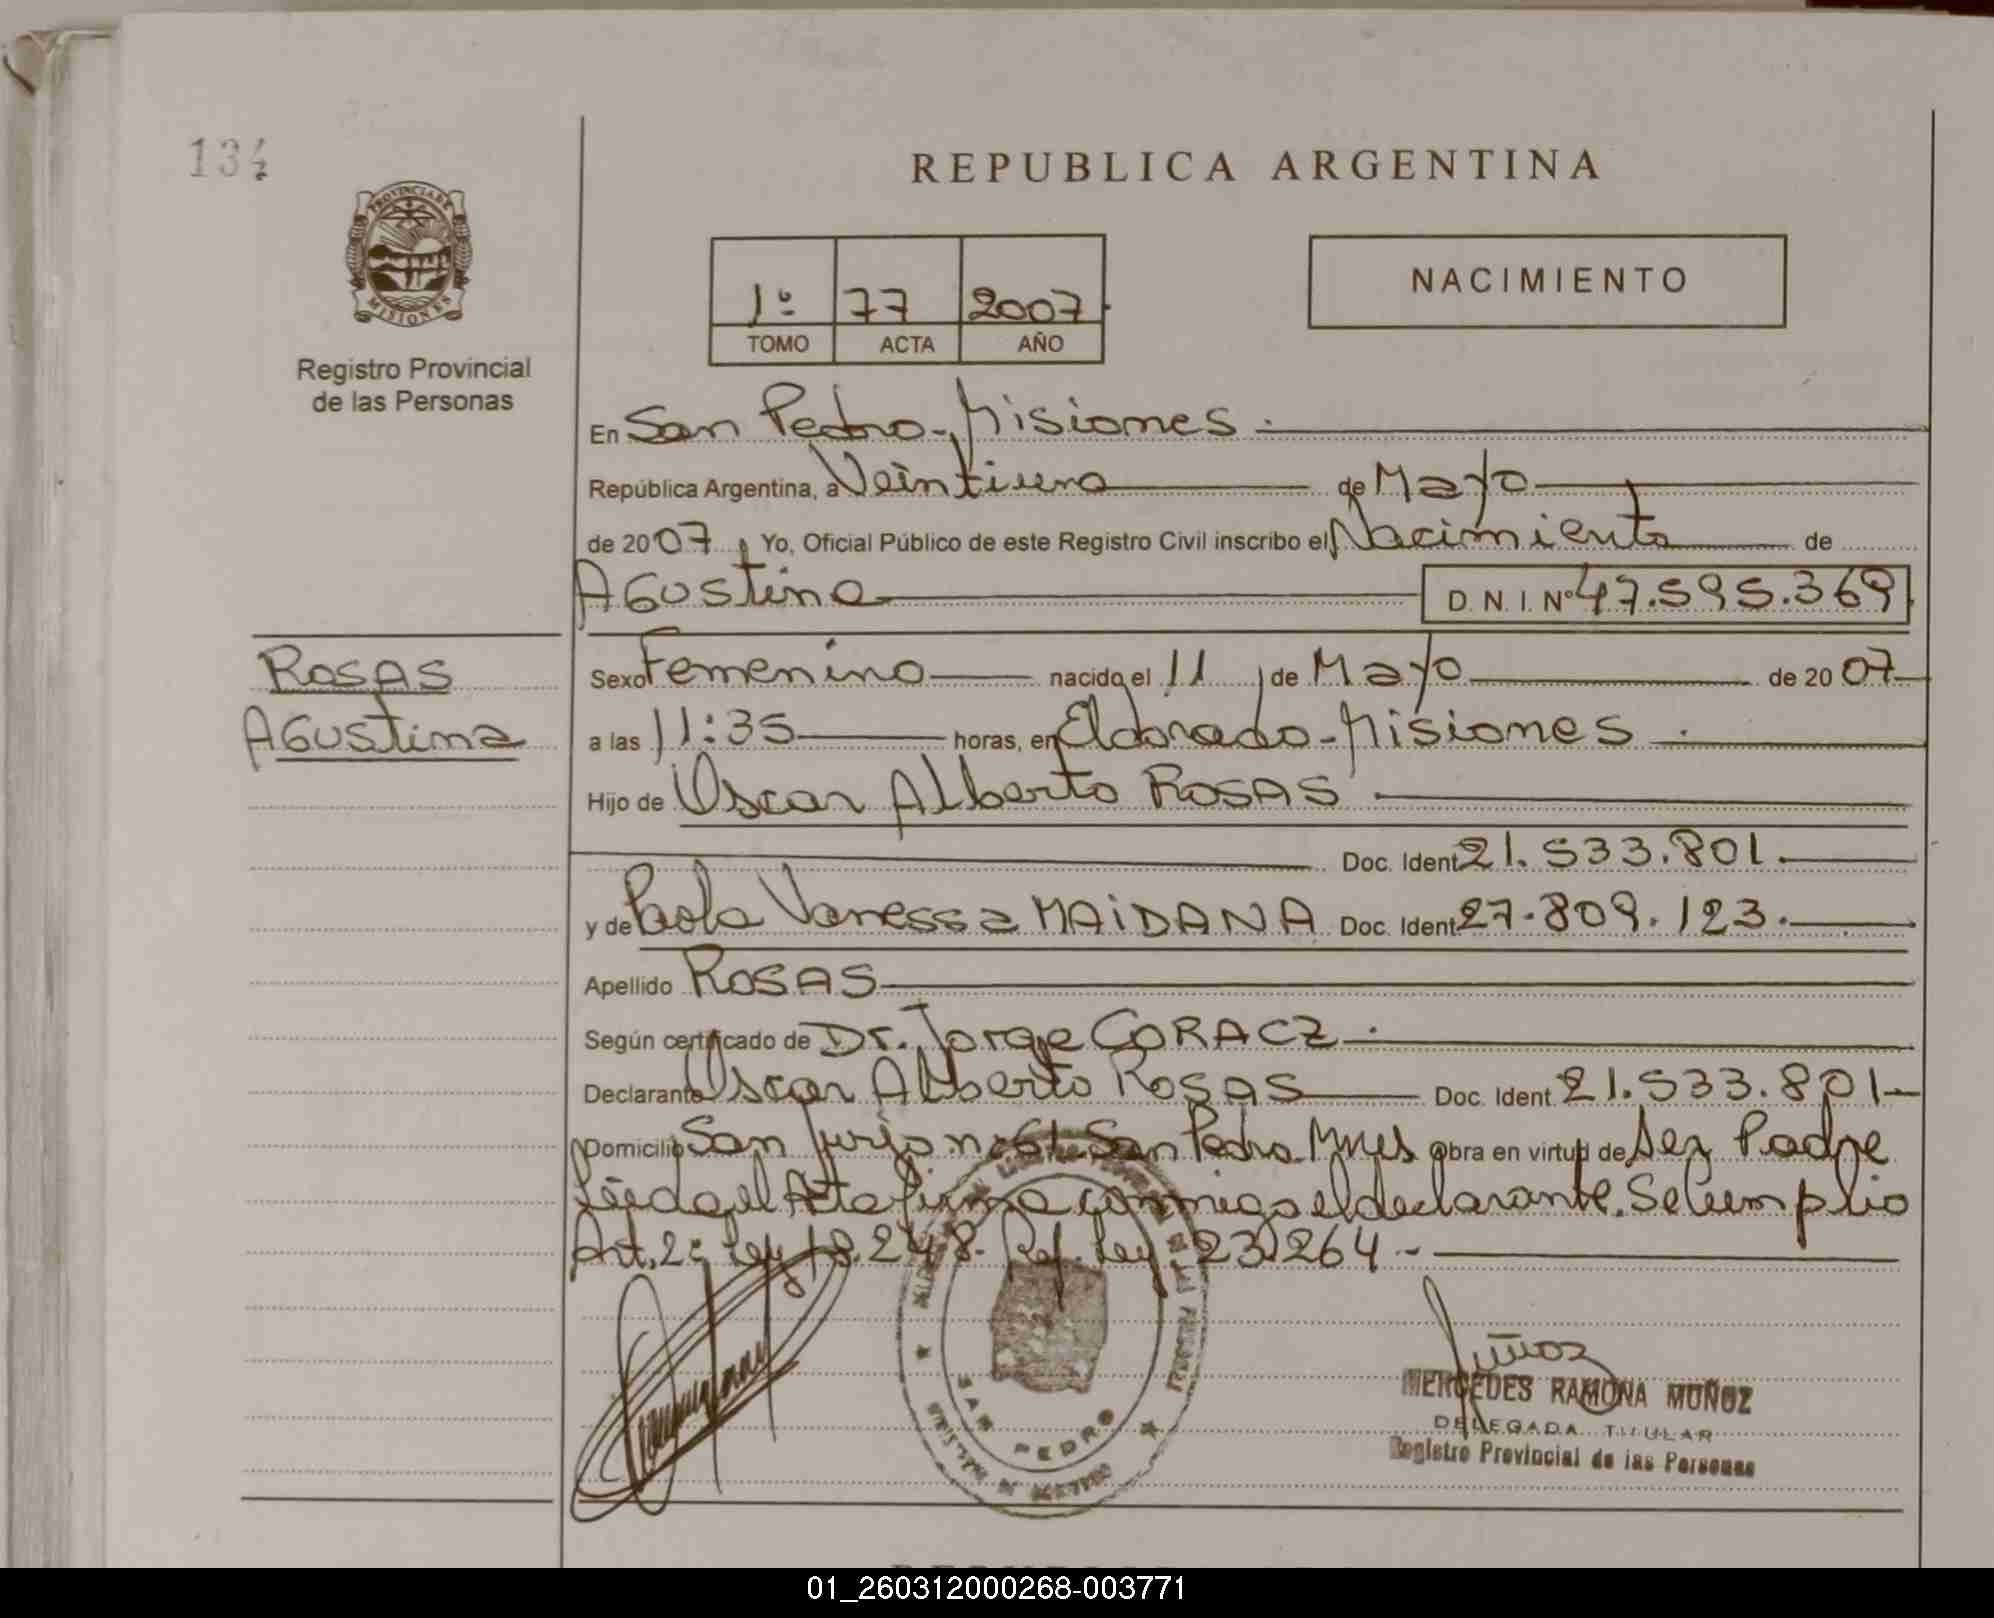 134
REPUBLICA ARGENTINA
PROVINCIA DE
MISIONES
Registro Provincial
de las Personas
1º 77 2007
TOMO ACTA AÑO
NACIMIENTO
En San Pedro - Misiones.
República Argentina, a Veintiuno de Mayo
de 2007, Yo, Oficial Público de este Registro Civil inscribo el Nacimiento de
AGustina D. N. I. Nº 47.595.369
ROSAS
AGustina
Sexo Femenino nacido el 11 de Mayo de 2007
a las 11:35 horas, en Eldorado - Misiones.
Hijo de Oscar Alberto ROSAS
Doc. Ident 21.533.801.
y de Paola Vanessa MAIDANA Doc. Ident 27.809.123.
Apellido ROSAS
Según certificado de Dr. Jorge CORACZ.
Declarante Oscar Alberto ROSAS Doc. Ident. 21.533.801
Domicilio San Pedro Mnes Obra en virtud de Ser Padre
Leida el Acta firma conmigo el declarante. Se Cumplio
Art. 2º Ley 18.248. Ref. Ley 23.264.-
SAN PEDRO
Muñoz
MERCEDES RAMONA MUÑOZ
DELEGADA TITULAR
Registro Provincial de las Personas
01_260312000268-003771